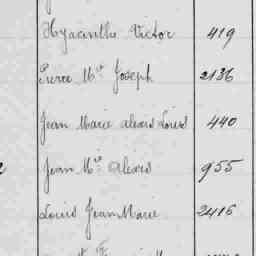 Hyacinthe Victor 419
Pierre Mie Joseph 2136
Jean Marie Alexis Louis 440
Jean Mie Alexis 955
Louis Jean Marie 2416